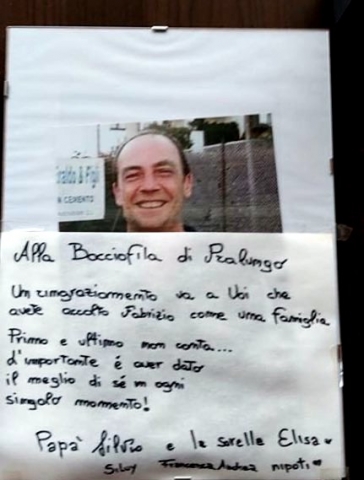 raldo & Figli
CEMENTO
Alla Bocciofila di Pralungo
Un ringraziamento va a Voi che
avete accolto Fabrizio come una famiglia.
Primo e ultimo non conta....
d'importante è aver dato
il meglio di sé in ogni
singolo momento!
Papà Silvio e le sorelle Elisa
Silvy Francesca Andrea nipoti